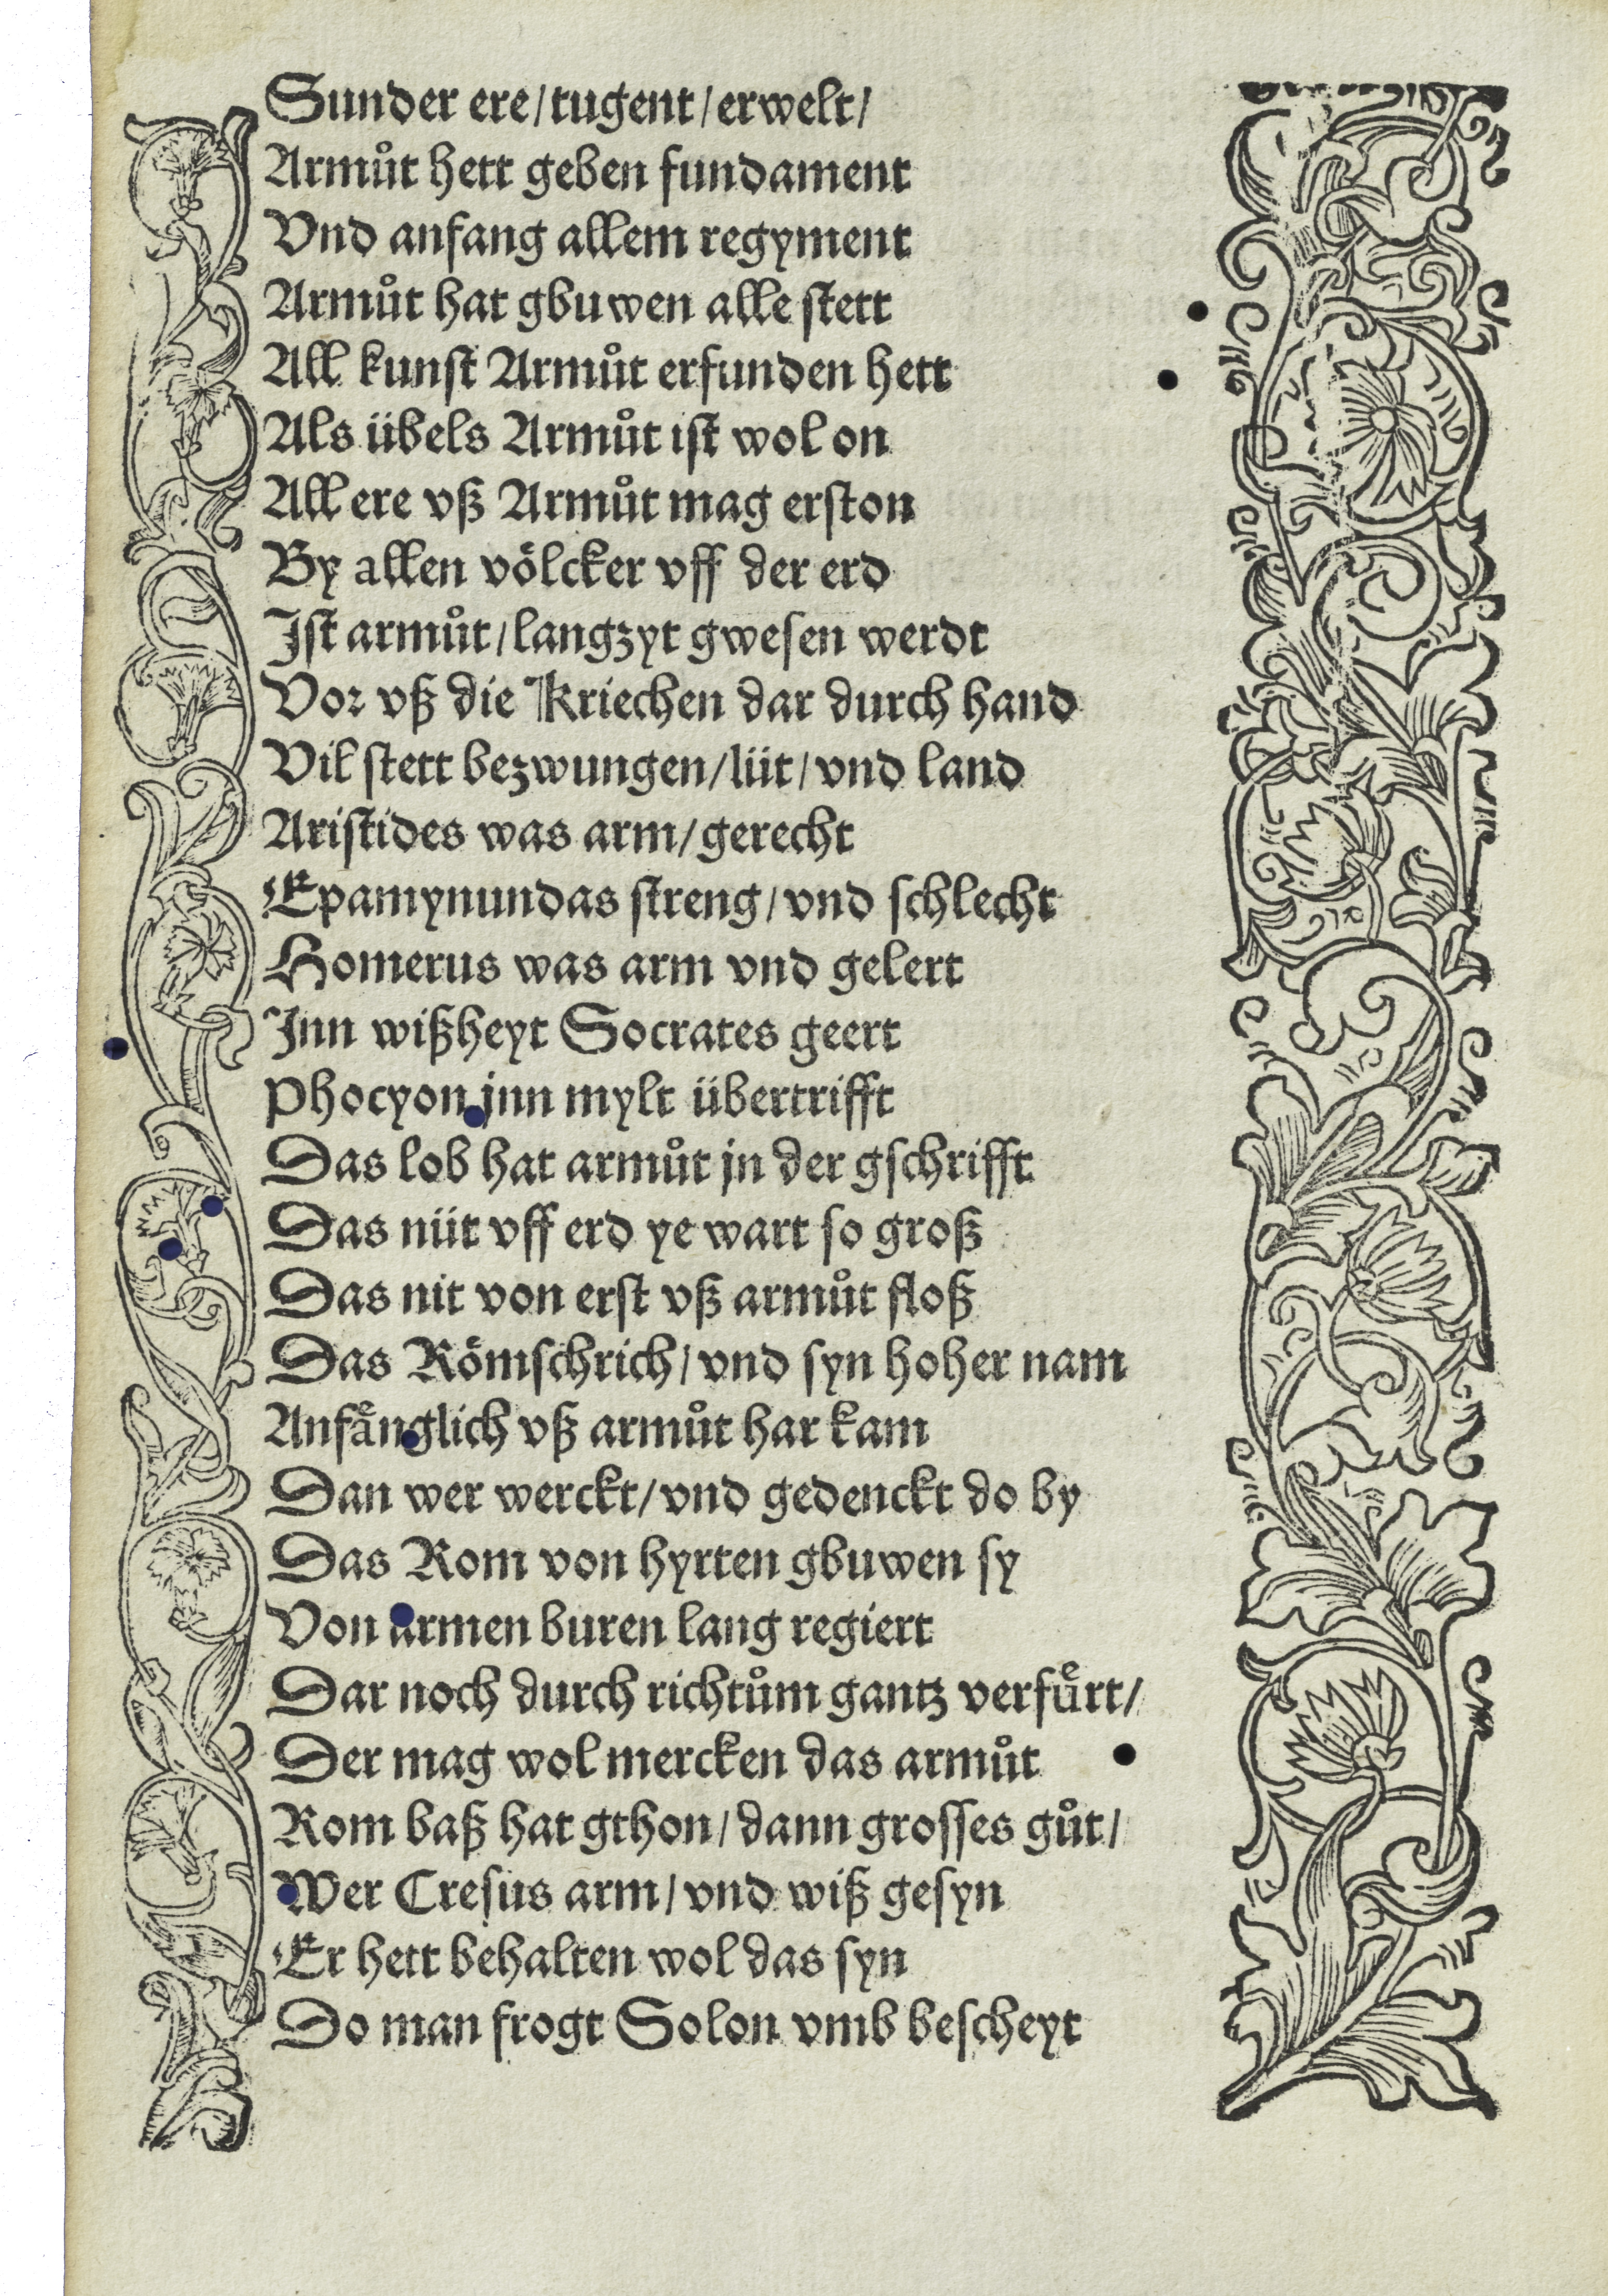 Sunder ere/tugent/erwelt/
Armuͦt hett geben fundament
Vnd anfang allem regyment
Armuͦt hat gbuwen alle stett
All kunst Armuͦt erfunden hett
Als übels Armuͦt ist wol on
All ere vß Armuͦt mag erston
By allen voͤlcker vff der erd
Ist armuͦt/langzyt gwesen werdt
Vor vß die Kriechen dar durch hand
Vil stett bezwungen/lüt/vnd land
Aristides was arm/gerecht
Epamynundas streng/vnd schlecht
Homerus was arm vnd gelert
Inn wißheyt Socrates geert
Phocyon jnn mylt übertrifft
Das lob hat armuͦt jn der gschrifft
Das nüt vff erd ye wart so groß
Das nit von erst vß armuͦt floß
Das Roͤmschrich/vnd syn hoher nam
Anfaͤnglich vß armuͦt har kam
Dan wer werckt/vnd gedenckt do by
Das Rom von hyrten gbuwen sy
Von armen buren lang regiert
Dar noch durch richtuͦm gantz verfuͤrt/
Der mag wol mercken das armuͦt
Rom baß hat gthon/dann grosses guͦt/
Wer Cresus arm/vnd wiß gesyn
Er hett behalten wol das syn
Do man frogt Solon vmb bescheyt